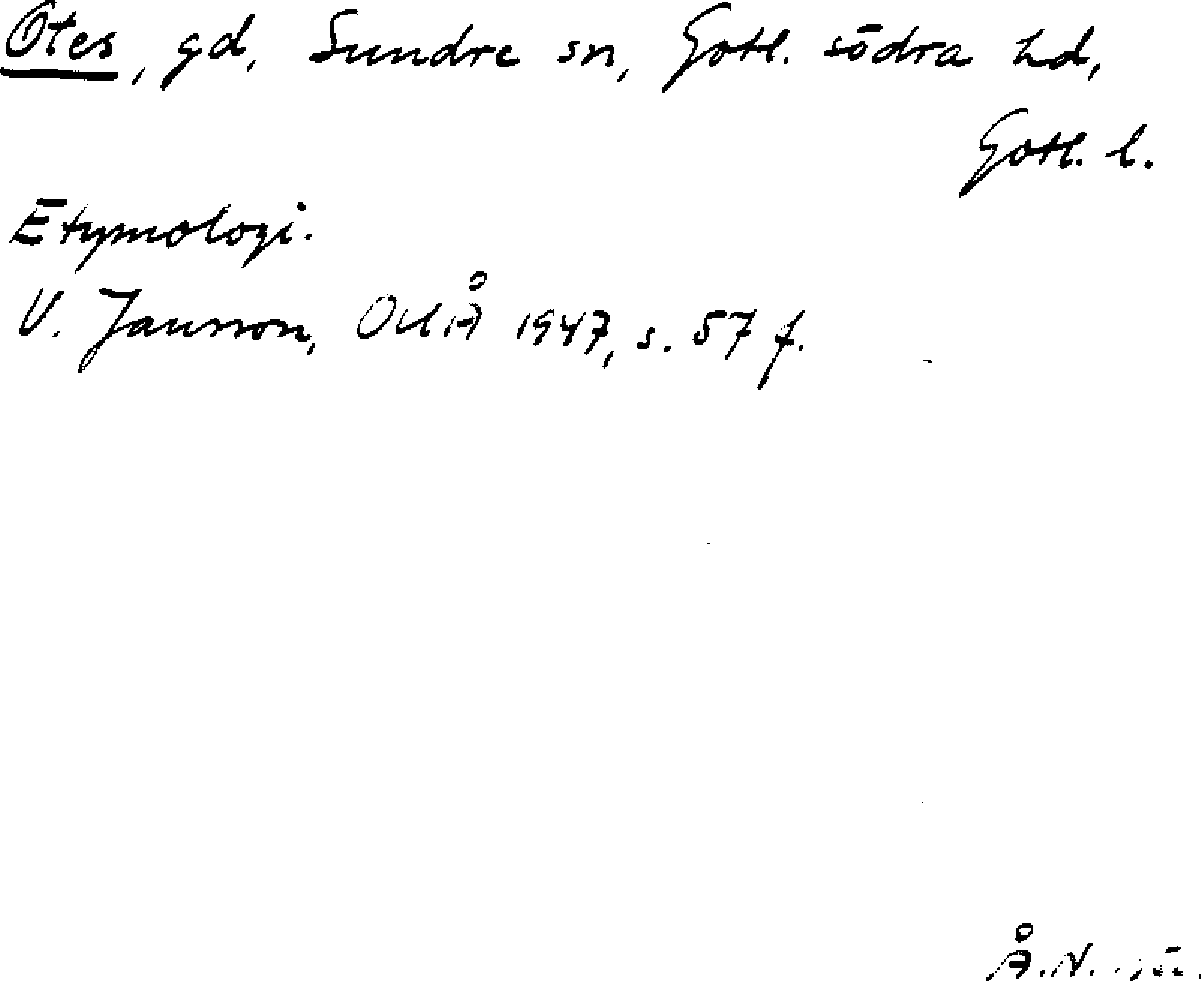 Otes, gd, Sundre sn, Gotl. södra hd,
Gotl. l.
Etymologi.
V. Jansson, OUÅ 1947, s. 57 f.
Å.N.